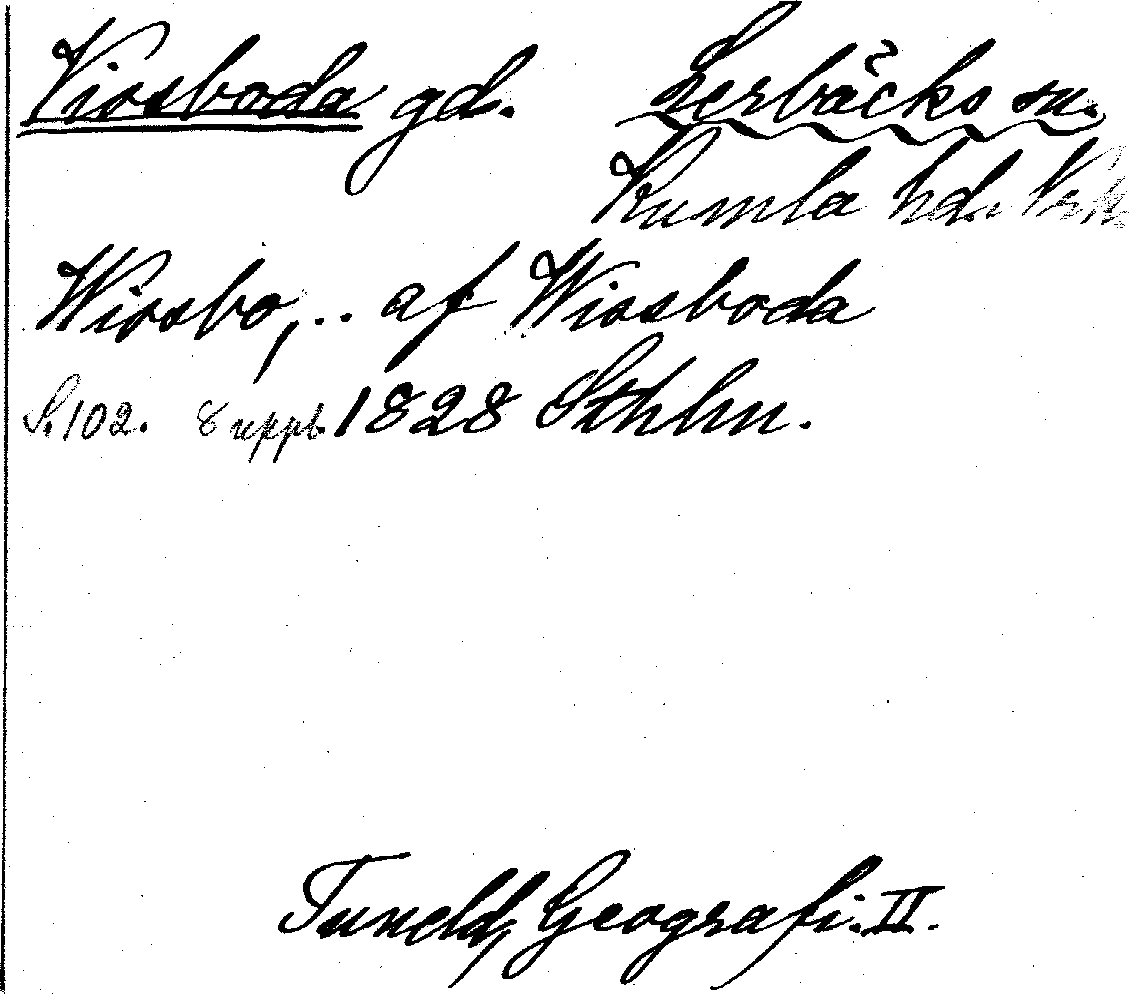 Viosboda gd. Lerbäcks sn.
Kumla hd. Nrk
Wiosbo, .. af Wiosboda
S. 102. 8 uppl. 1828 Sthlm.
Tuneld, Geografi. II.